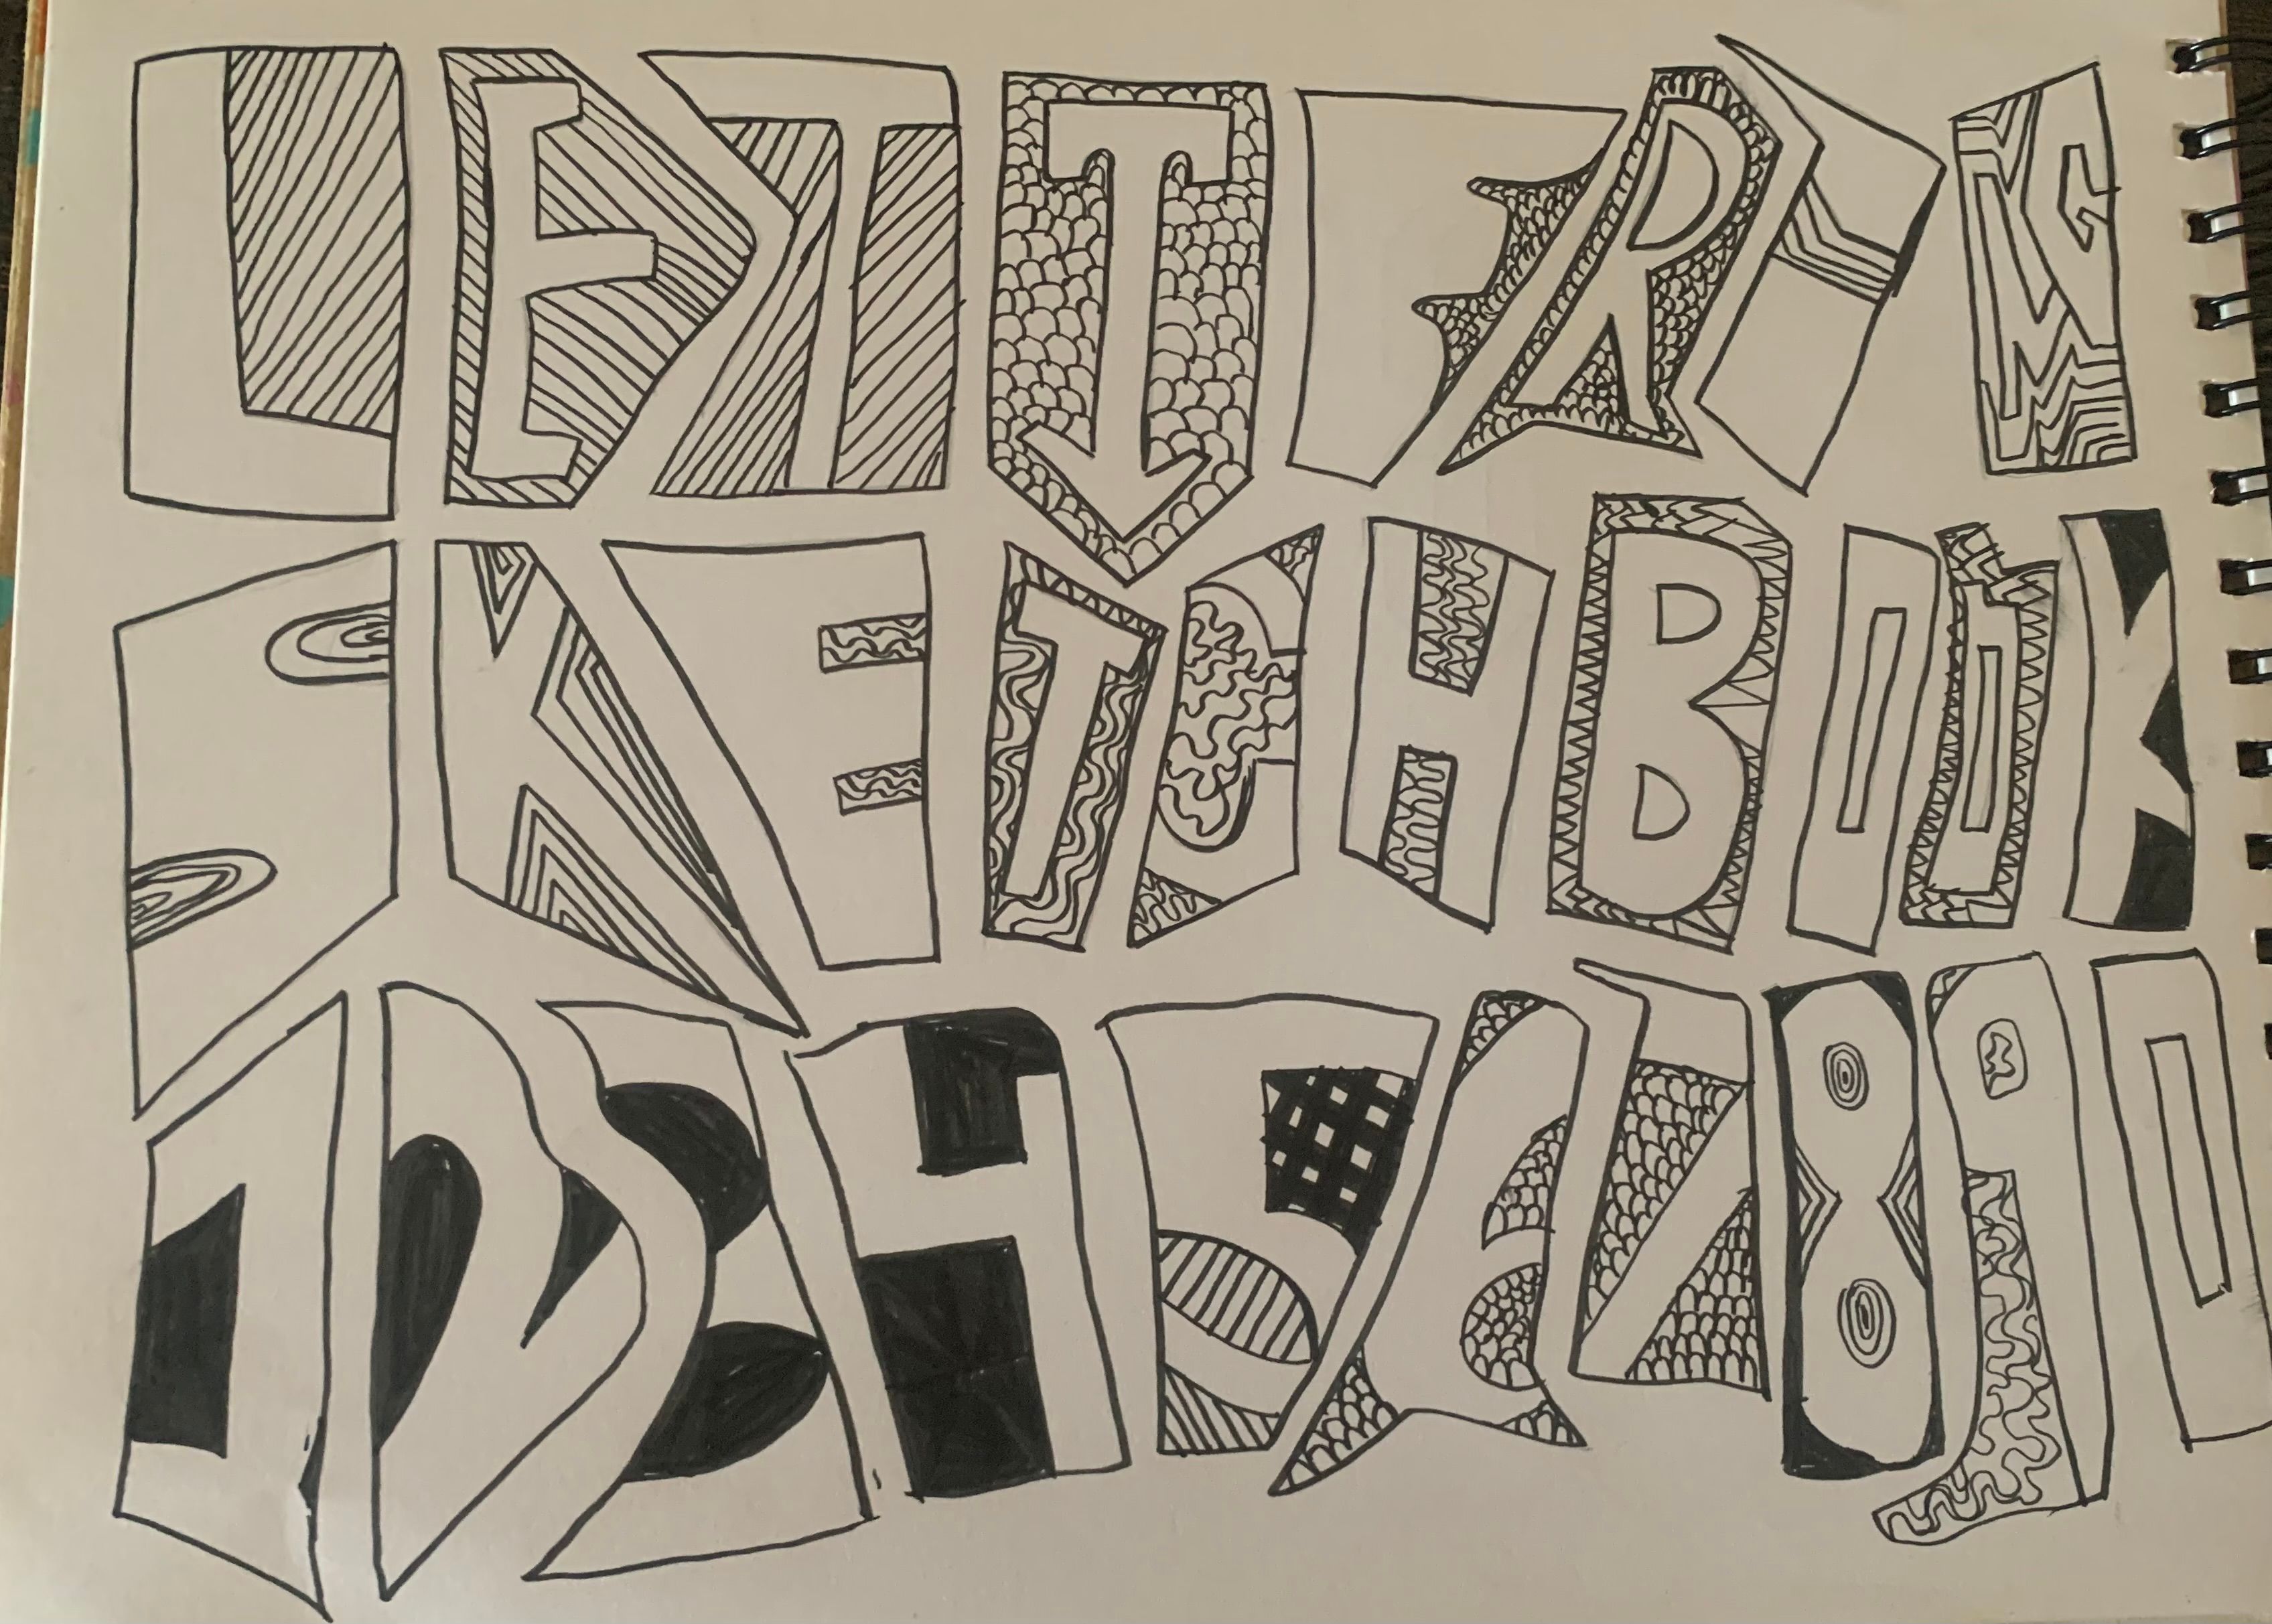 LETTERING
SKETCHBOOK
1234567890